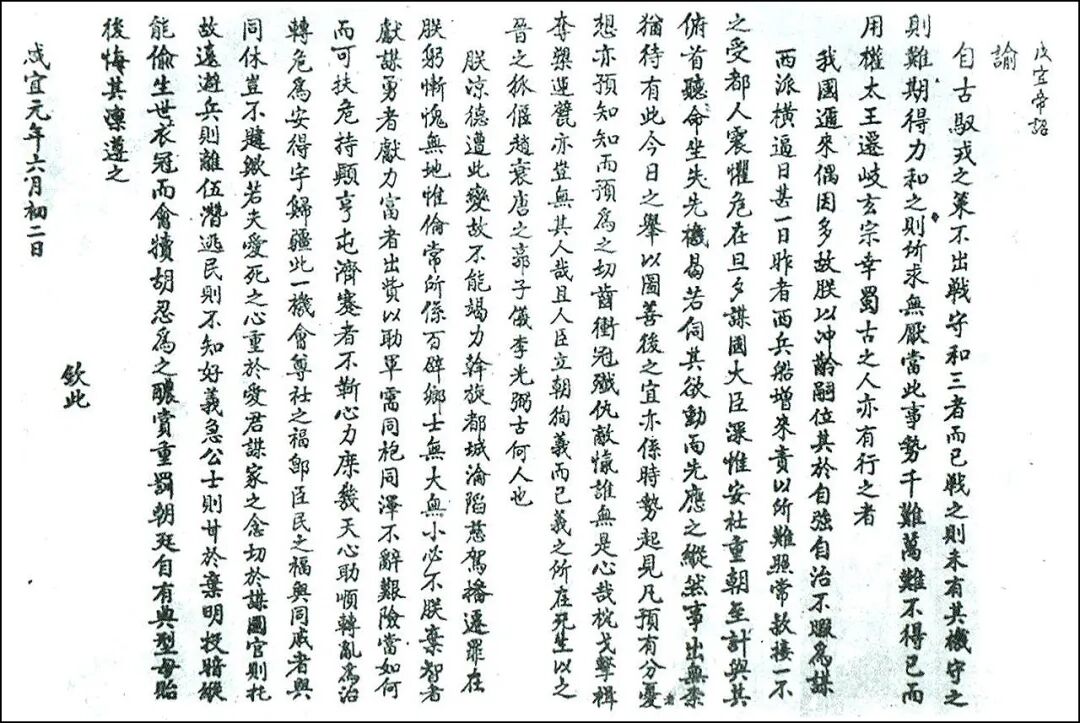 咸宜帝詔
諭
自古馭戎之策不出戰守和三者而已戰之則未有其機守之
則難期得力和之則所求無厭當此事勢千難萬難不得已而
用權太王遷岐玄宗幸蜀古之人亦有行之者
我國邇來偶因多故朕以冲齡嗣位其於自強自治不暇為謀
西派橫逼日甚一日昨者西兵船增來責以所難照常款接一不
之受都人震懼危在旦夕謀國大臣深惟安社重朝至計與其
俯首聽命坐失先機曷若伺其欲動而先應之縱然事出無柰
猶待有此今日之舉以圖善後之宜亦係時勢起見凡預有分憂者
想亦預知知而預為之切齒衝冠殲仇敵愾誰無是心哉枕戈擊楫
奪槊運甓亦豈無其人哉且人臣立朝狥義而已義之所在死生以之
晉之狐偃趙衰唐之郭子儀李光弼古何人也
朕凉德遭此變故不能竭力幹旋都城淪陷慈駕播遷罪在
朕躬慚愧無地惟倫常所係百辟鄉士無大無小必不朕棄智者
獻謀勇者獻力富者出貲以助軍需同袍同澤不辭艱險當如何
而可扶危持顛亨屯濟蹇者不靳心力庶幾天心助順轉亂為治
轉危為安得字歸疆此一機會尊社之福即臣民之福與同戚者與
同休豈不韙歟若夫愛死之心重於愛君謀家之念切於謀國官則托
故遠避兵則離伍潛逃民則不知好義急公士則甘於棄明投暗縱
能偷生世衣冠而會犢胡忍為之醲賞重罰朝廷自有典型毋貽
後悔其凛遵之
欽此
咸宜元年六月初二日